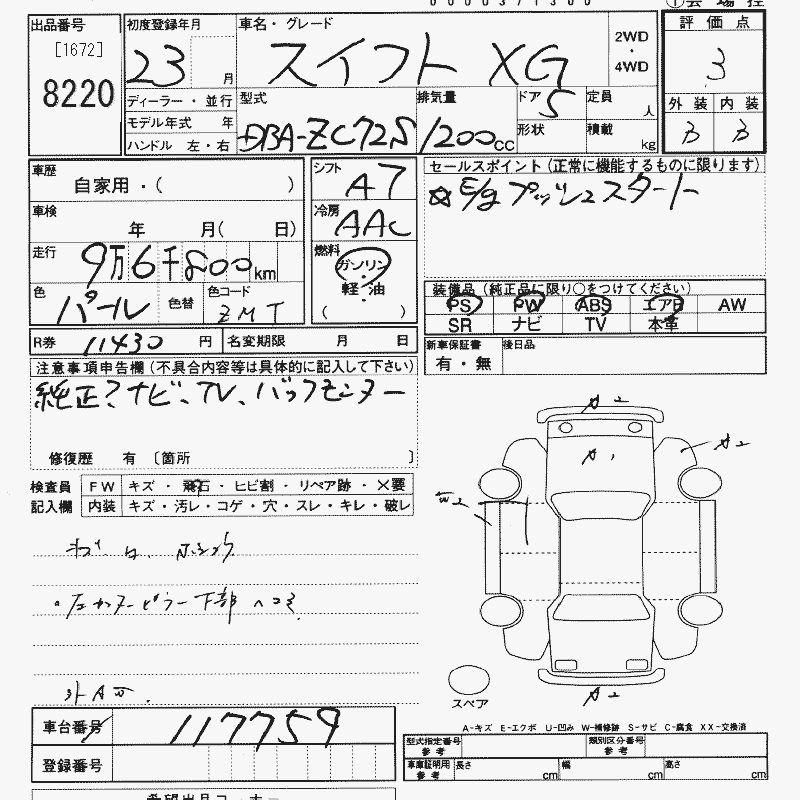 0000371300
出品番号
[1672]
8220
初度登録年月
23 月
車名・グレード
スイフト XG
2WD
・
4WD
評価点
3
外装 内装
B B
ディーラー・並行
モデル年式 年
ハンドル 左・右
型式
DBA-ZC72S
排気量
1200cc
ドア 5
形状
定員 人
積載 kg
車歴
自家用・( )
車検
年 月( 日)
走行
9万6千800km
色
パール
色替
色コード
ZMT
シフト
A7
冷房
AAC
燃料
ガソリン
・
軽・油
( )
セールスポイント(正常に機能するものに限ります)
☆E/g プッシュスタート
装備品(純正品に限り○をつけてください)
PS PW ABS エアB AW
SR ナビ TV 本革
R券 11430 円 名変期限 月 日
新車保証書
有・無
後日品
注意事項申告欄(不具合内容等は具体的に記入して下さい)
純正?ナビ、TV、バックモニター
修復歴 有 〔箇所 〕
検査員
記入欄
FW キズ・飛石・ヒビ割・リペア跡・×要
内装 キズ・汚レ・コゲ・穴・スレ・キレ・破レ
センターピラー下部 ヘコミ
外
A2
A1
A2
W2
A2
スペア
車台番号 117759
登録番号
A-キズ E-エクボ U-凹み W-補修跡 S-サビ C-腐食 XX-交換済
型式指定番号
参考
類別区分番号
参考
車庫証明用
参考
長さ cm 幅 cm 高さ cm
希望出品コーナー